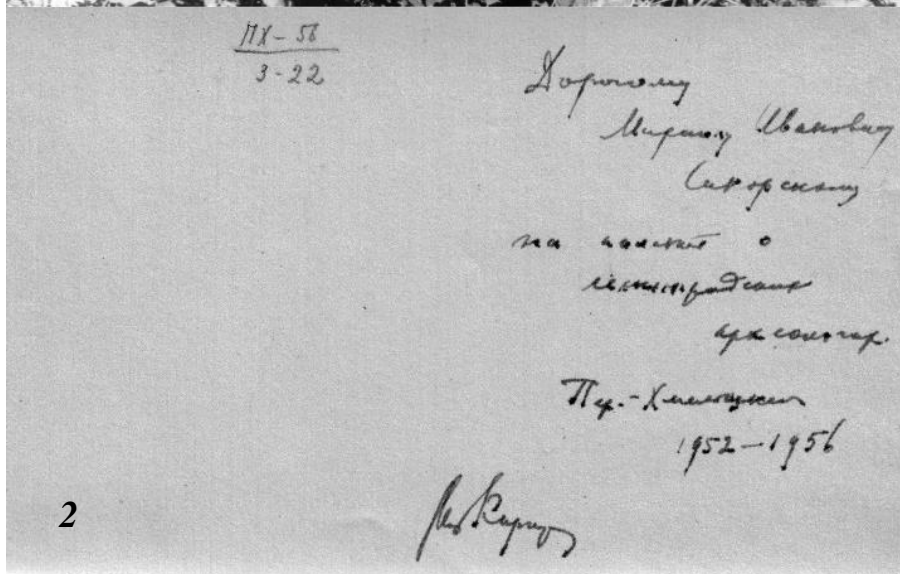 ПХ-56
3-22
Дорогому
Михаилу Ивановичу
Сикорскому
на память о
ленинградских
археологах.
Пер.-Хмельницкий
1952-1956
2